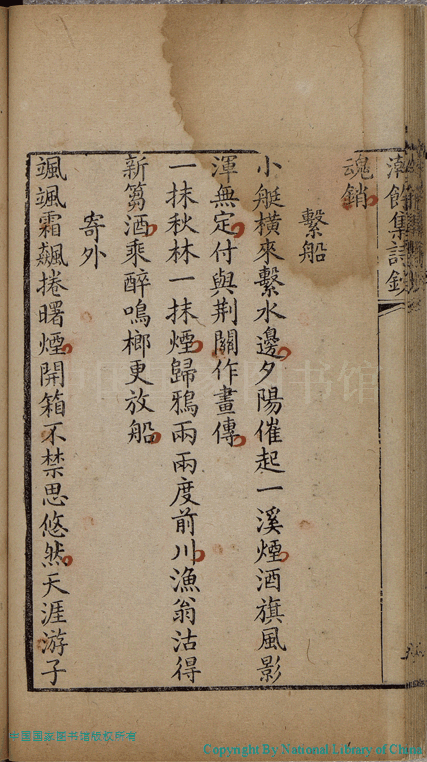 魂銷
繫船
小艇橫來繫水邊夕陽催起一溪煙酒旗風影
渾無定付與荆關作畫傳
一抹秋林一抹煙歸鴉兩兩度前川漁翁沽得
新篘酒乘醉鳴榔更放船
寄外
颯颯霜飆捲曙煙開箱不禁思悠然天涯游子
中国国家图书馆
中国国家图书馆版权所有
Copyright By National Library of China